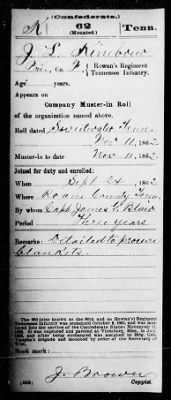 (Confederate.)
K 62 Tenn.
(Mounted.)
J. L. Kimbrow
Pri., Co. F, Rowan's Regiment
Tennessee Infantry.
Age years.
Appears on
Company Muster-in Roll
of the organization named above.
Roll dated Sweetwater Tenn.
Nov 11, 1862.
Muster-in to date Nov 10, 1862.
Joined for duty and enrolled:
When Sept 24, 1862.
Where Roane County Tenn.
By whom Capt James C. Blair
Period Three years
Remarks: Detailed to procure
blankets.
Book mark:
J. Brown
Copyist.